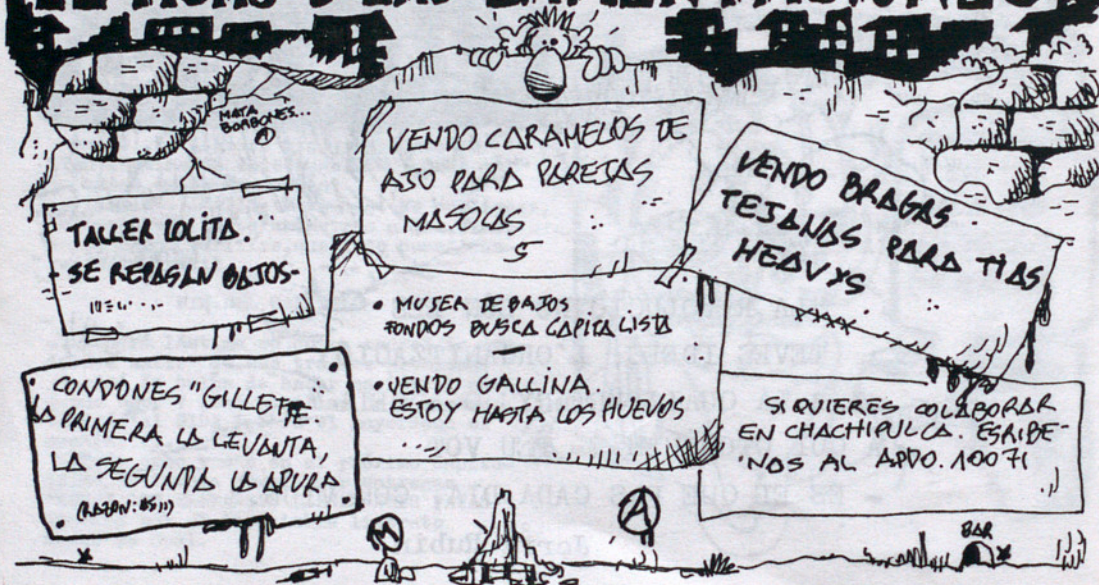 EL MURO D LAS LAMENTACIONES
MATA
BORBONES...
VENDO CARAMELOS DE
AJO PARA PAREJAS
MASOCAS
VENDO BRAGAS
TEJANAS PARA TIAS
HEAVYS
TALLER LOLITA.
SE REPASAN BAJOS-
• MUJER DE BAJOS
FONDOS BUSCA CAPITALISTA
• VENDO GALLINA.
ESTOY HASTA LOS HUEVOS
CONDONES "GILLETTE
LA PRIMERA LA LEVANTA,
LA SEGUNDA LA APURA
(RAZON: BS))
SI QUIERES COLABORAR
EN CHACHIPULCA. ESRIBE-
NOS AL APDO. 10071
A
A
BAR